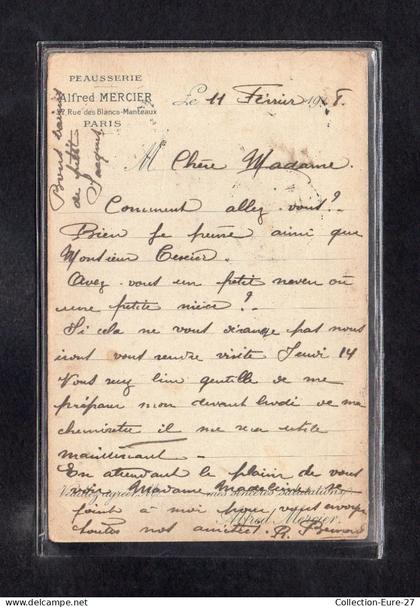 PEAUSSERIE
Alfred MERCIER
Rue des Blancs-Manteaux
PARIS
Le 11 Février 19
Bons baisers
de petit
Jacques
M Chère Madame.
Comment allez vous?
Bien je pense ainsi que
Monsieur
Avez-vous un petit neveu où
une petite nièce?
Si cela ne vous dérange pas nous
irons vous rendre visite Jeudi 14
Vous serez bien gentille de me
préparer mon devant brodé de ma
chemisette il me sera utile
maintenant
En attendant le plaisir de vous
voir Madame Madeleine se
Veuillez agréer mes sincères Salutations,
joint à moi pour vous envoyer
toutes nos amitiés. R.
Alfred Mercier.
© Collection-Eure-27
delcampe.net